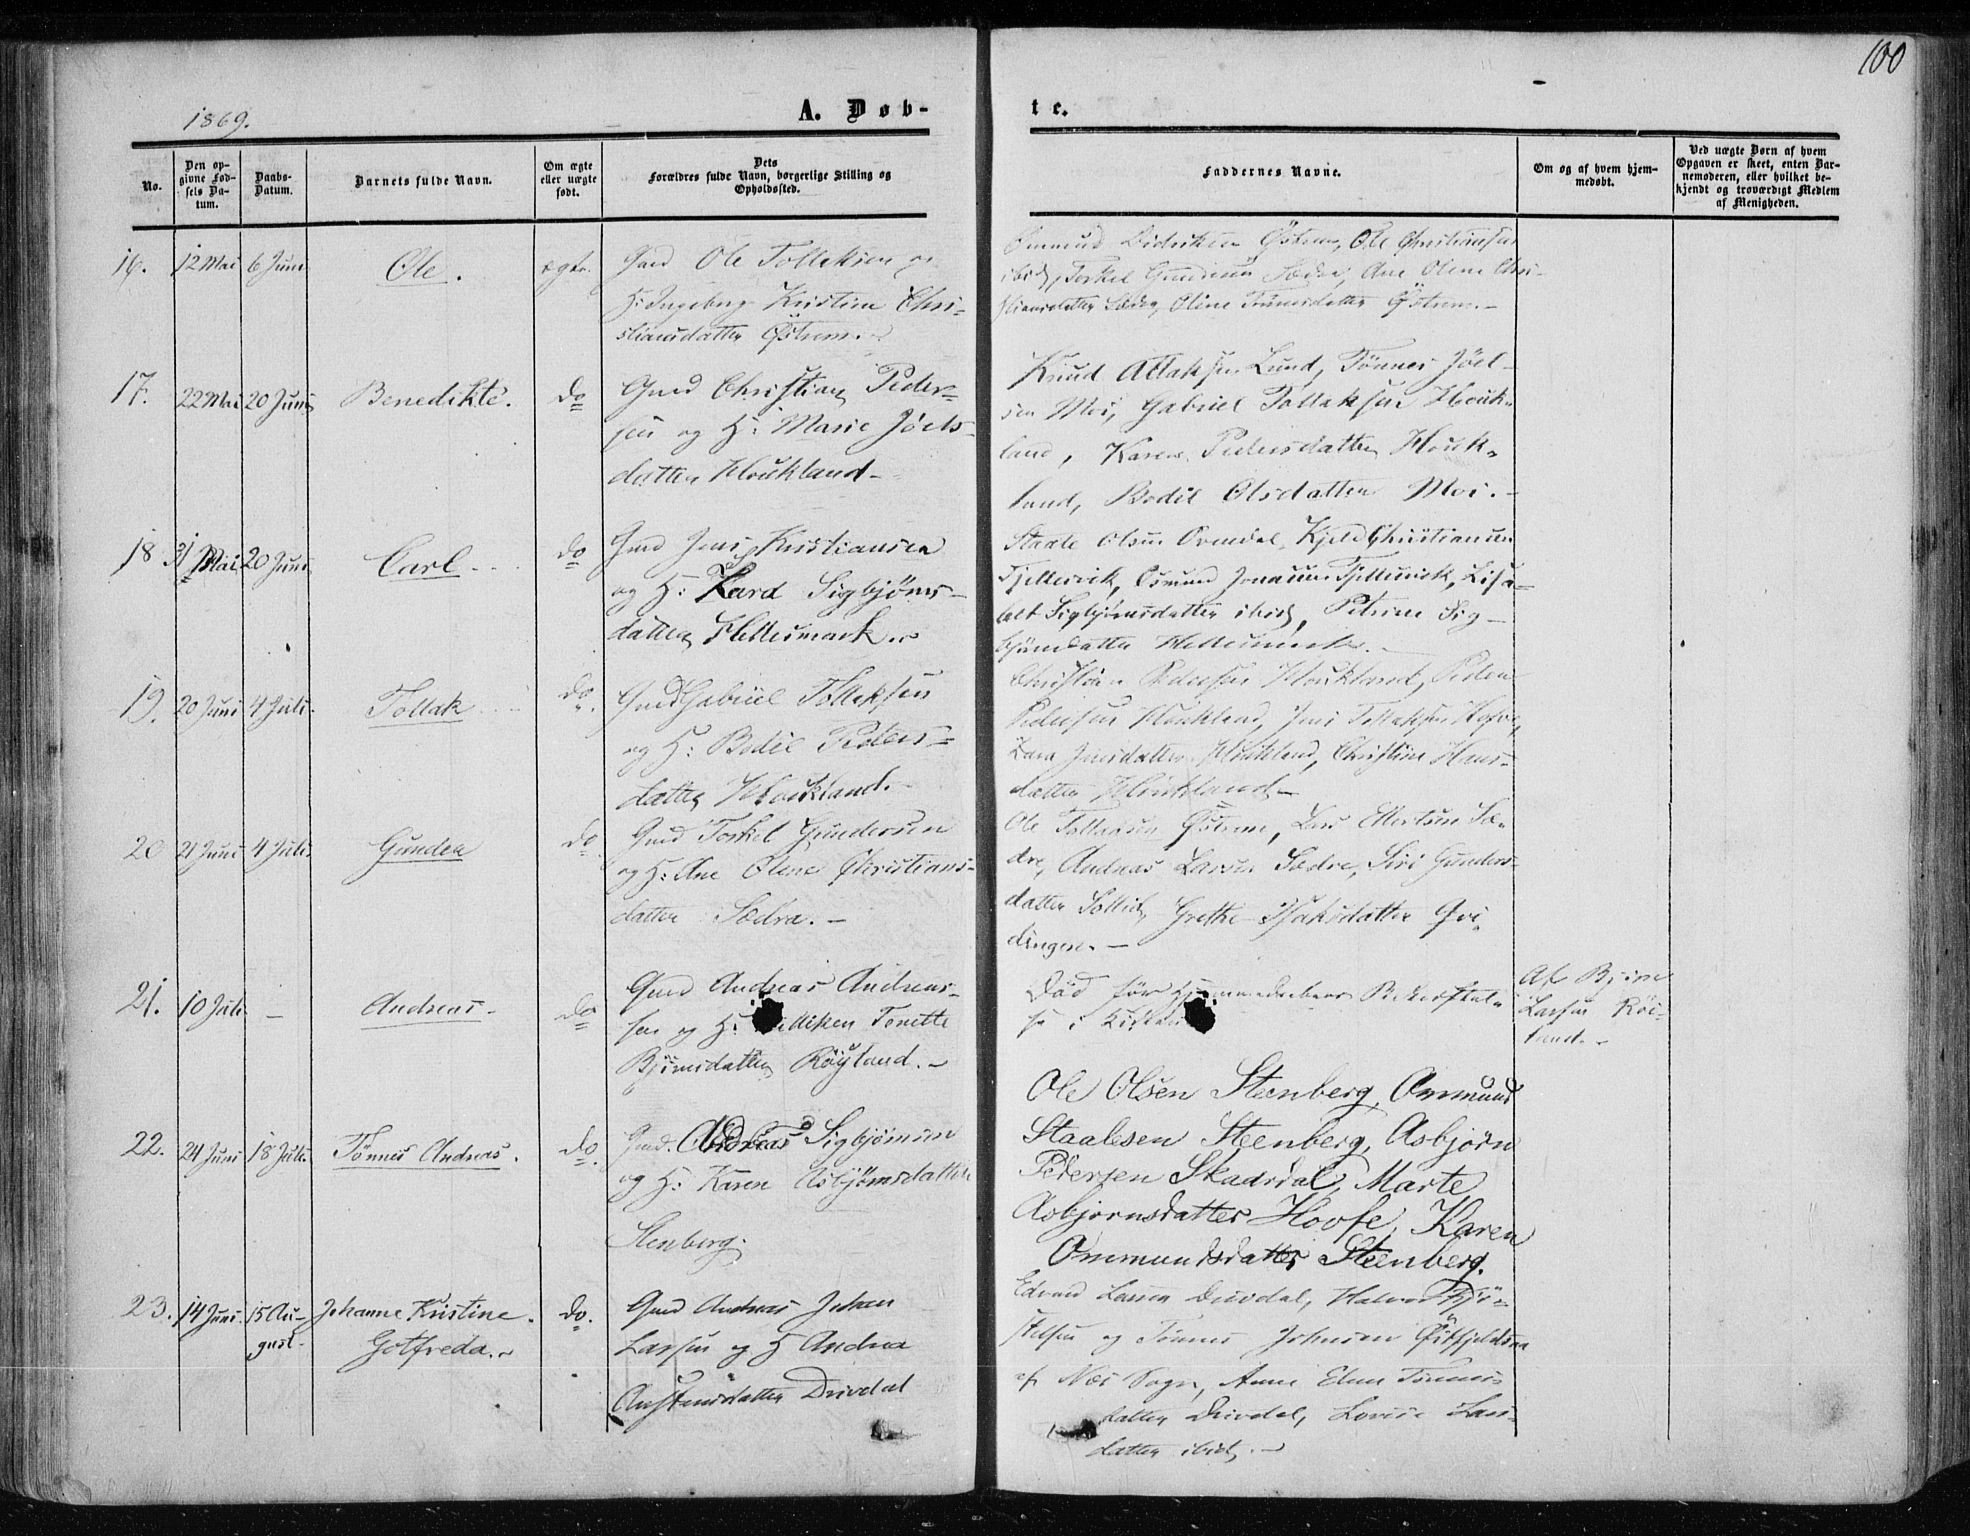 100
1869.
A. Døb-
te.
No.
Den op-
givne Fød-
sels Da-
tum.
Daabs-
Datum.
Barnets fulde Navn.
Om ægte
eller uægte
født.
Dets
Forældres fulde Navn, borgerlige Stilling og
Opholdssted.
Faddernes Navne.
Om og af hvem hjem-
medøbt.
Ved uægte Børn af hvem
Opgaven er skeet, enten Bar-
nemoderen, eller hvilket be-
kjendt og troværdigt Medlem
af Menigheden.
16. 12 Mai 6 Juni Ole. ægte.
Gmd Ole Tollaksen og
H: Ingeborg Kristine Chri-
stiansdatter Østrem.
Ommund Didriksen Østrem, Ole Christiansen
ibid, Torkel Gundersen Sædre, Ane Olene Chri-
stiansdatter Sædre, Oline Tønnesdatter Østrem.-
17. 22 Mai 20 Juni Benedikte. do
Gmd Christian Peder-
sen og H: Marie Jöels-
datter Houkland-
Knud Attaksen Lund, Tønnes Jöel-
sen Moi, Gabriel Tollaksen Houk-
land, Karen Pedersdatter Houk-
land, Bodil Olsdatter Moi.-
18 31 Mai 20 Juni Carl do
Gmd Jens Kristiansen
og H: Kard Sigbjørns-
datter Hettesmark.
Staale Olsen Ovendal, Kjeld Christiansen
Fjellesvik, Osmund Jonassen Fjellesvik, Lisa-
bet Sigbjørnsdatter ibid, Petrine Sig-
bjørnsdatter Hettesmark.
19. 20 Juni 4 Juli. Tollak do.
Gmd Gabriel Tollaksen
og H: Bodil Peders-
datter Houkland.-
Christian Pedersen Houkland, Peder
Pedersen Houkland, Jens Tollaksen Hofve,
Lara Jensdatter Houkland, Christine Hans-
datter Houkland-
20 21 Juni 4 Juli. Gunder do
Gmd Torkel Gundersen
og H: Ane Olene Christians-
datter Sædre. -
Ole Tollaksen Østrem, Lars Ellertsen Sæ-
dre, Andreas Larsen Sædre, Siri Gunders-
datter Sollid, Grethe Isaksdatter Qvi-
dingen. -
21. 10 Juli - Andreas. do
Gmd Andreas Andreas-
sen og H: Tonette
Bjørnsdatter Røyland. -
Død før Hjemmedaabens Bekræftel-
se i Kirken
Af Bjørn
Larsen Röi-
land. -
22. 24 Juni 18 Juli. Tønnes Andreas. do.
Gmd. Andreas Sigbjørnsen
og H: Karen Asbjørnsdatter
Stenberg.
Ole Olsen Steenberg, Ommund
Staalesen Steenberg, Asbjørn
Pedersen Skadsdal, Marte
Asbjørnsdatter Hovfe, Karen
Ommundsdatter Steenberg.
23. 14 Juni 15 Au-
gust. Johanne Kristine
Gotfreda. do.
Gmd Andreas Johan
Larsen og H Andrea
Austensdatter Drivdal
Edvard Larsen Drivdal, Halvor
og Tønnes Johnsen Østfjeldene
af Næs Sogn, Anne Elene Tønnes-
datter Drivdal, Lovise Lars-
datter ibid. -